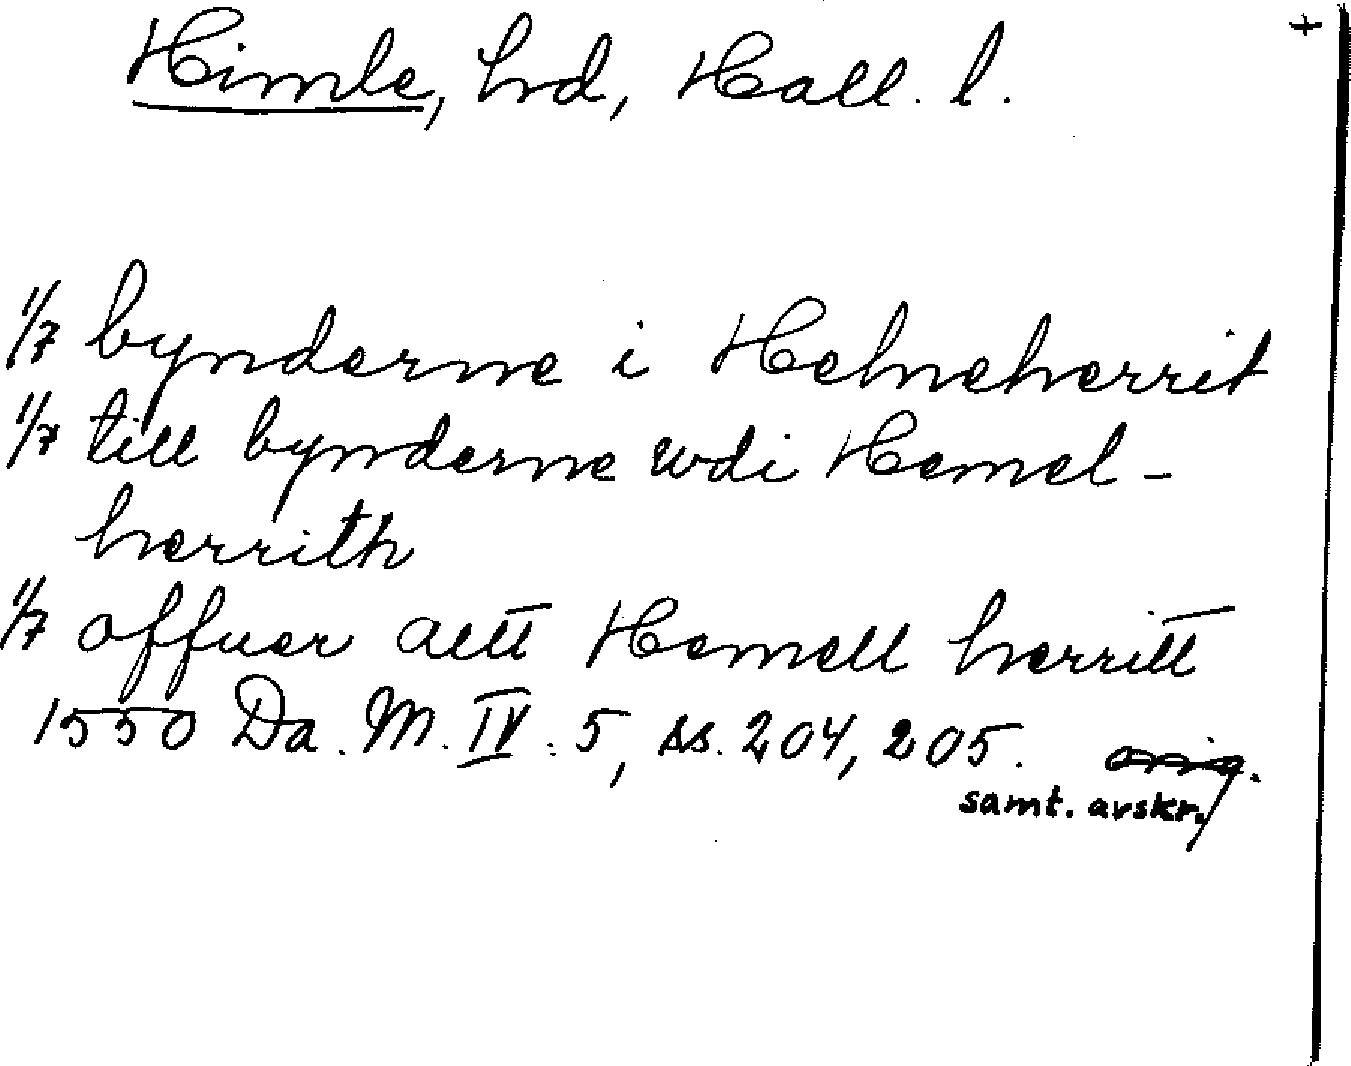 +
Himle, hd, Hall. l.
1/7 bynderne i Helneherrit
1/7 till bynderne udi Hemel-
herrith
1/7 offuer altt Hemell herritt
1550 Da. M. IV. 5, ss. 204, 205. orig.
samt. avskr.